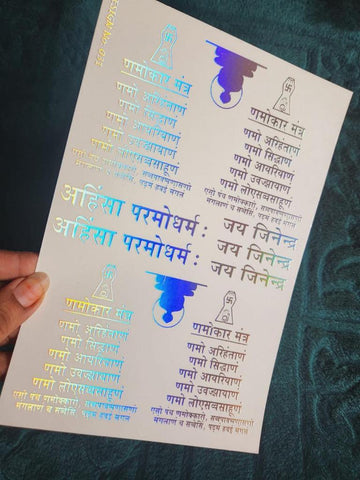 DESIGN No 055
णमोकार मंत्र
णमो अरिहंताणं
णमो सिद्धाणं
णमो आयरियाणं
णमो उवज्झायाणं
णमो लोएसव्वसाहूणं
एसो पंच णमोक्कारो, सव्वपावप्पणासणो
मंगलाणं च सव्वेसिं, पढ़मं हवई मंगलं
णमोकार मंत्र
णमो अरिहंताणं
णमो सिद्धाणं
णमो आयरियाणं
णमो उवज्झायाणं
णमो लोएसव्वसाहूणं
एसो पंच णमोक्कारो, सव्वपावप्पणासणो
मंगलाणं च सव्वेसिं, पढ़मं हवई मंगलं
अहिंसा परमोधर्म : जय जिनेन्द्र
अहिंसा परमोधर्म : जय जिनेन्द्र
णमोकार मंत्र
णमो अरिहंताणं
णमो सिद्धाणं
णमो आयरियाणं
णमो उवज्झायाणं
णमो लोएसव्वसाहूणं
एसो पंच णमोक्कारो, सव्वपावप्पणासणो
मंगलाणं च सव्वेसिं, पढ़मं हवई मंगलं
णमोकार मंत्र
णमो अरिहंताणं
णमो सिद्धाणं
णमो आयरियाणं
णमो उवज्झायाणं
णमो लोएसव्वसाहूणं
एसो पंच णमोक्कारो, सव्वपावप्पणासणो
मंगलाणं च सव्वेसिं, पढ़मं हवई मंगलं